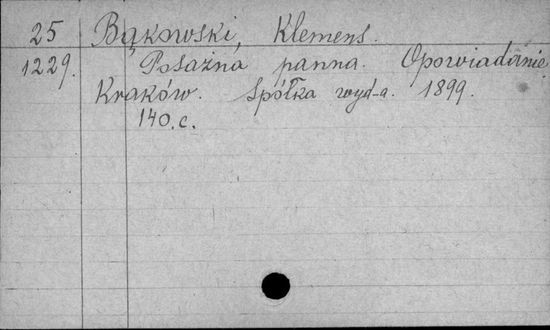 25 Bąkowski, Klemens.
1229. Posażna panna. Opowiadanie.
Kraków. Spółka wyd-a. 1899.
140.c.